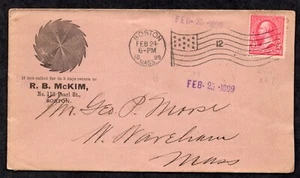 FEB-25-1899
BOSTON
FEB 24
6-PM
MASS.
12
If not called for in 5 days return to
R. B. McKIM,
No. 115 Pearl St.,
BOSTON.
FEB-25-1899
Mr. Geo P. Morse
W. Wareham
Mass